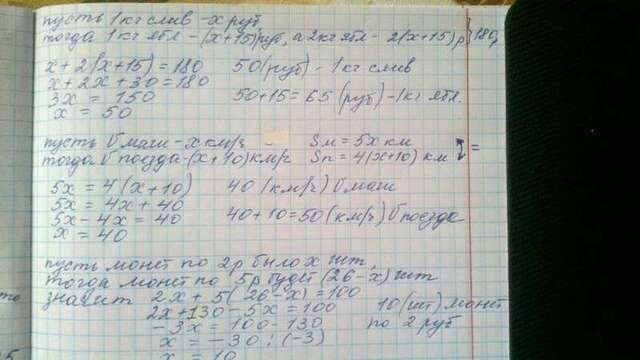 пусть 1 кг слив - x руб
тогда 1 кг ябл - (x+15) руб, а 2 кг ябл - 2(x+15) р } 180р
x + 2(x+15) = 180 50 (руб) - 1 кг слив
x + 2x + 30 = 180
3x = 150 50+15 = 65 (руб) - 1 кг ябл.
x = 50
пусть v маш - x км/ч Sм = 5x км
тогда v поезда - (x+10) км/ч Sп = 4(x+10) км =
5x = 4(x+10) 40 (км/ч) v маш
5x = 4x + 40
5x - 4x = 40 40 + 10 = 50 (км/ч) v поезда
x = 40
пусть монет по 2р было x шт,
тогда монет по 5р будет (26-x) шт
значит 2x + 5(26-x) = 100
2x + 130 - 5x = 100 10 (шт) монет
-3x = 100 - 130 по 2 руб
x = -30 : (-3)
x = 10